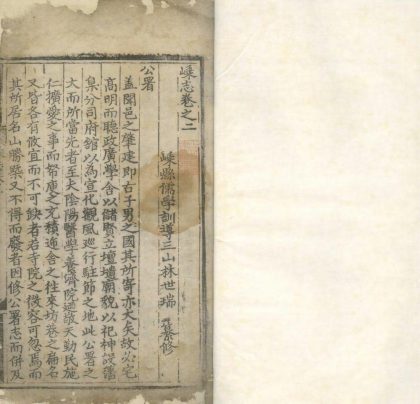 嵊志卷之二
嵊縣儒學訓導三山林世瑞 纂修
公署
蓋聞邑之肇建即古子男之國其所寄亦大矣故必宅
高明而聽政廣學舍以儲賢立壇壝廟貌以祀神設藩
臬分司府館以為宣化觀風巡行駐節之地此公署之
大而所當先者至夫陰陽醫學養濟院遞敬天勤民施
仁擴愛之事而帑庾之充積逓舍之往來坊巷之扁名
又皆各有攸宜而不可缺者若寺院之後容可忽焉而
其所居名山勝槩又不得而廢者因修公署志而併及